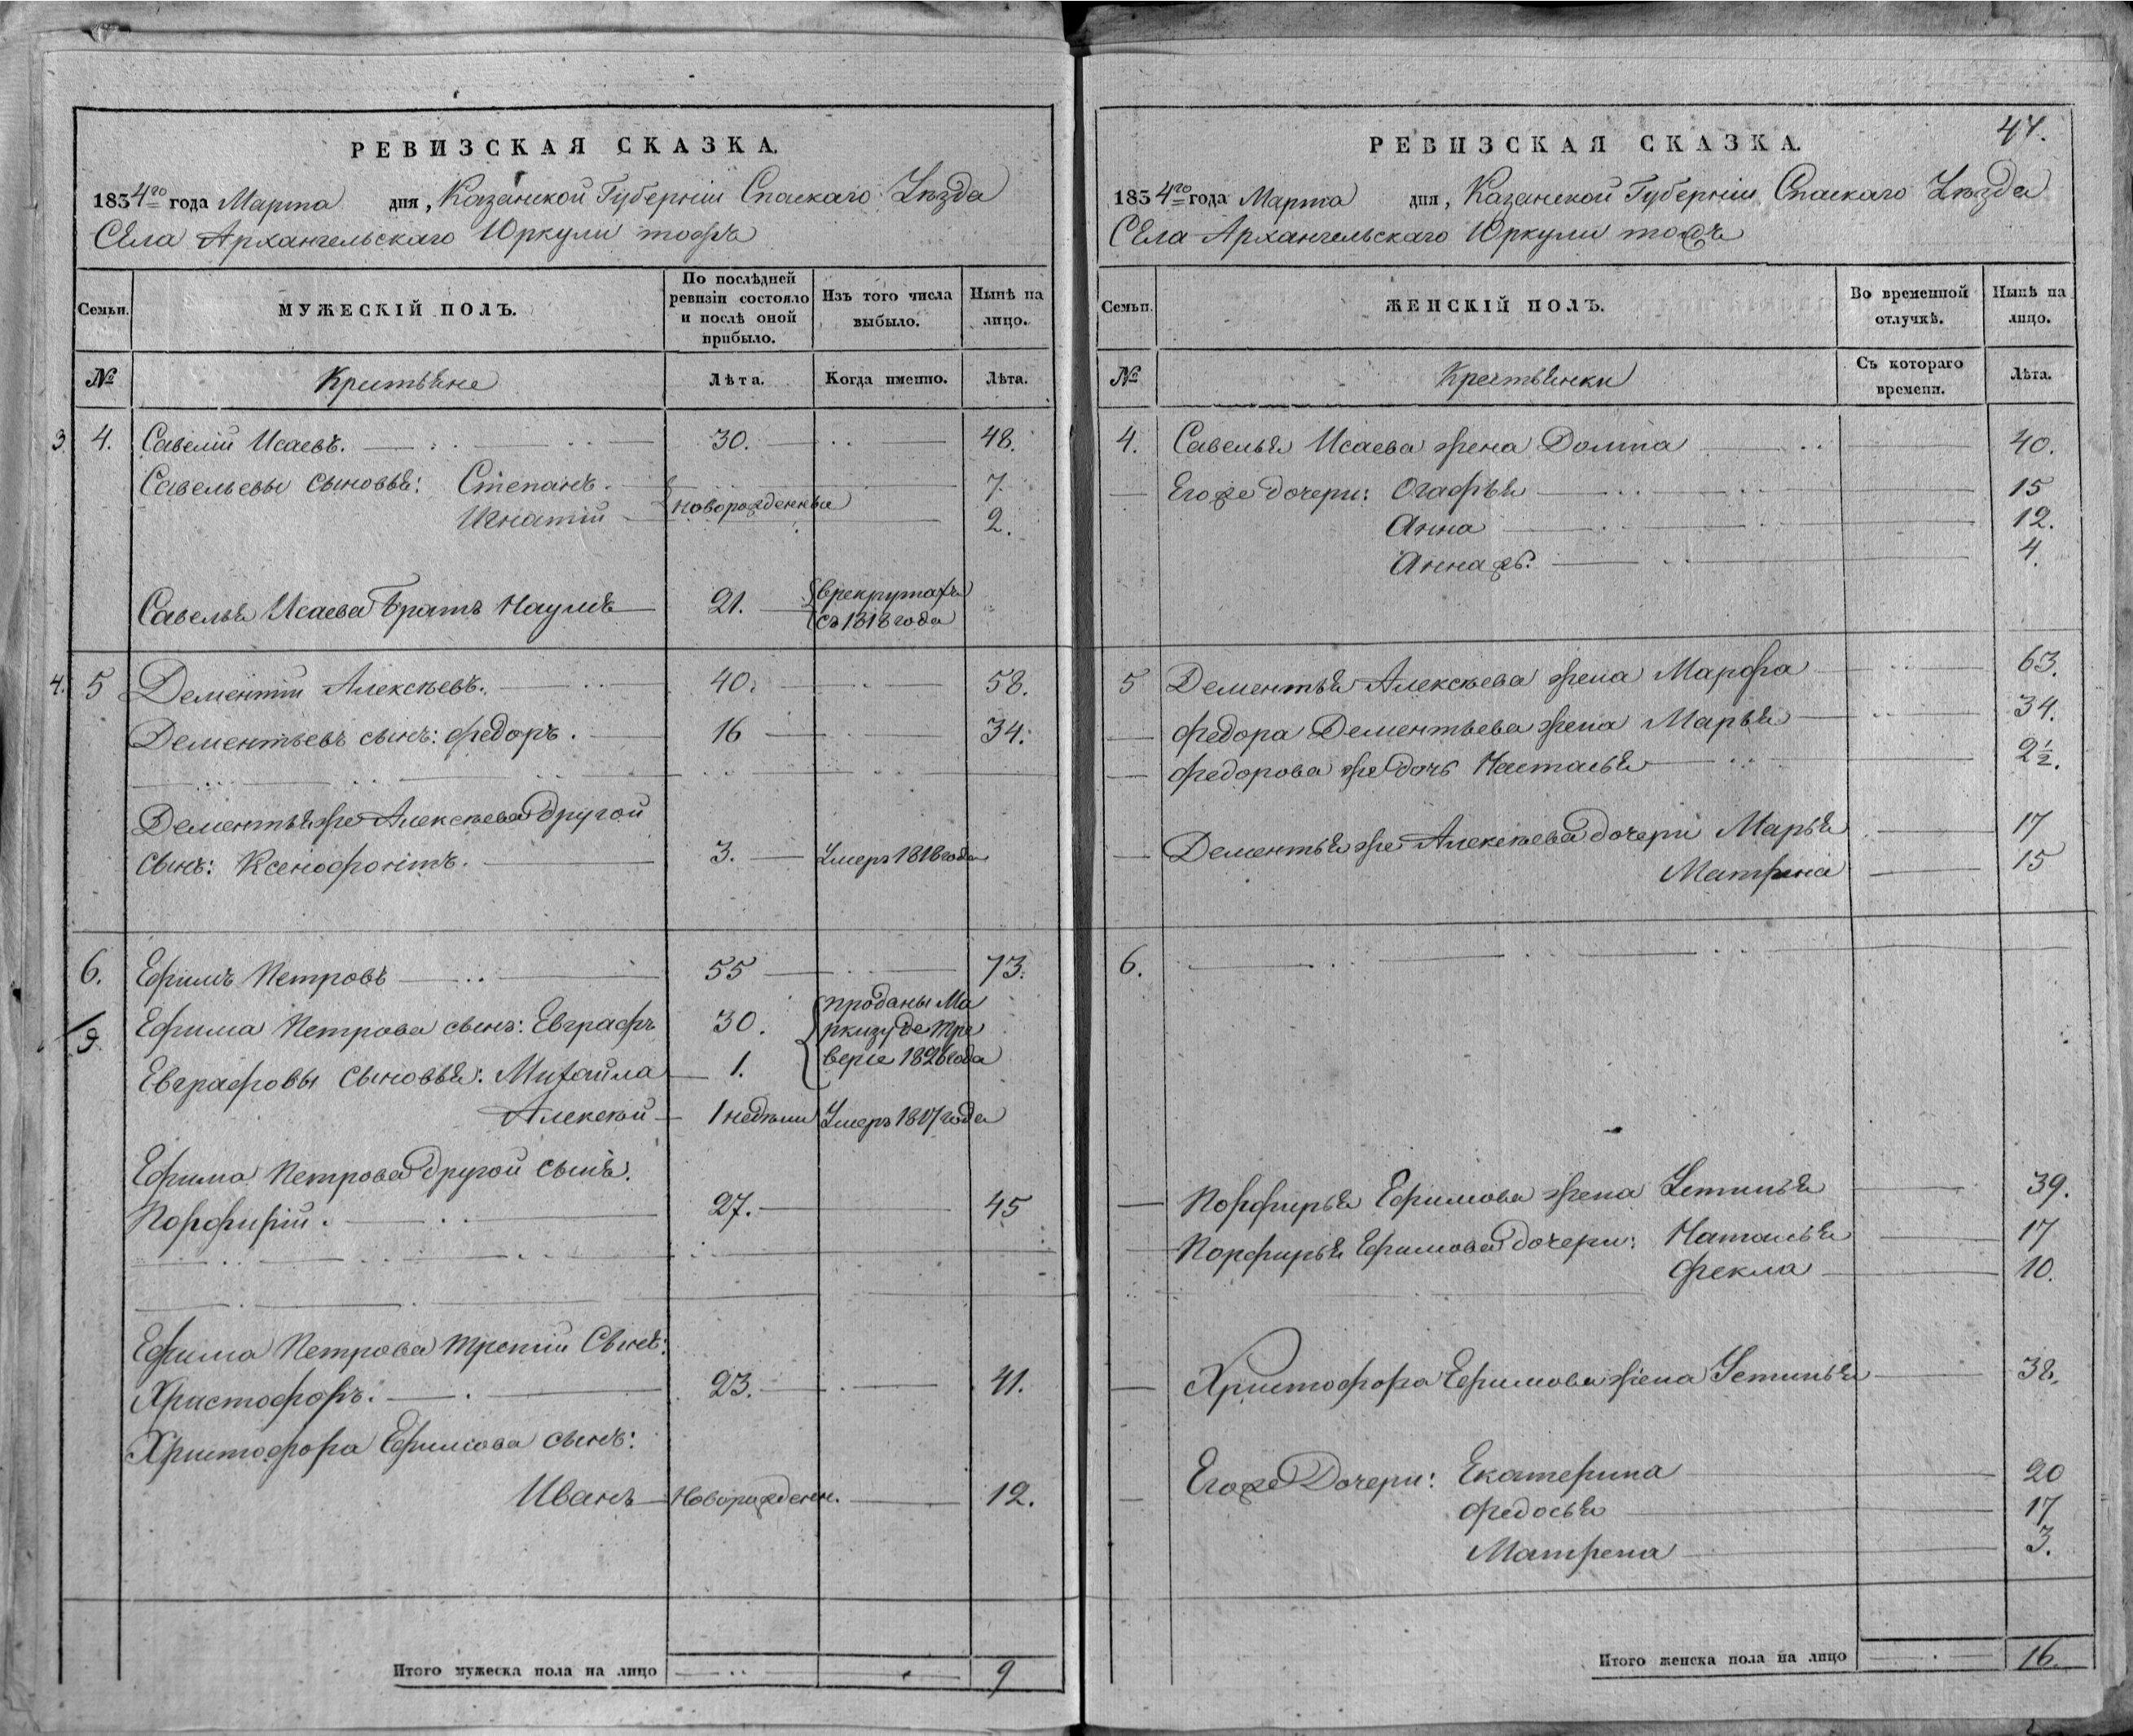 РЕВИЗСКАЯ СКАЗКА.
1834го года Марта дня, Казанской Губернiи Спаскаго Уѣзда
Села Архангельскаго Юркули тожъ
Семьи.
МУЖЕСКІЙ ПОЛЪ.
По послѣдней ревизіи состояло и послѣ оной прибыло.
Изъ того числа выбыло.
Нынѣ на лицо.
№
Крестьяне
Лѣта.
Когда именно.
Лѣта.
3 4. Савелiй Исаевъ. 30. 48.
Савельевы сыновья: Степанъ. 7.
новорожденныя
Игнатiй 2.
Савелья Исаева братъ Наумъ 21. в рекрутахъ
съ 1818 года
4. 5 Дементiй Алексѣевъ. 40. 58.
Дементьевъ сынъ: Федоръ. 16 34.
Дементья же Алексѣева другой
сынъ: Ксенофонтъ. 3. Умеръ 1818 года
6. Ефимъ Петровъ 55 73.
Ефима Петрова сынъ: Евграфъ 30. проданы Ма
ркизу де Тре
Евграфовы сыновья: Михайла 1. версе 1826 года
Алексѣй 1 недѣли Умеръ 1817 года
Ефима Петрова другой сынъ:
Порфирiй. 27. 45
Ефима Петрова третiй Сынъ:
Христофоръ. 23. 41.
Христофора Ефимова сынъ:
Иванъ Новорожденн. 12.
Итого мужеска пола на лицо 9
47.
РЕВИЗСКАЯ СКАЗКА.
1834го года Марта дня, Казанской Губернiи Спаскаго Уѣзда
Села Архангельскаго Юркули тожъ
Семьи.
ЖЕНСКІЙ ПОЛЪ.
Во временной отлучкѣ.
Нынѣ на лицо.
№
Крестьянки
Съ котораго времени.
Лѣта.
4. Савелья Исаева жена Домна 40.
Его же дочери: Огафья 15
Анна 12.
Анна жъ. 4.
5 Дементья Алексѣева жена Марфа 63.
Федора Дементьева жена Марья 34.
Федорова же дочь Настасья 2½.
Дементья же Алексѣева дочери Марья 17
Матрена 15
6.
Порфирья Ефимова жена Устинья 39.
Порфирья Ефимова дочери: Наталья 17
Фекла 10.
Христофора Ефимова жена Устинья 38.
Его же Дочери: Екатерина 20
Федосья 17
Матрена 3.
Итого женска пола на лицо 16.